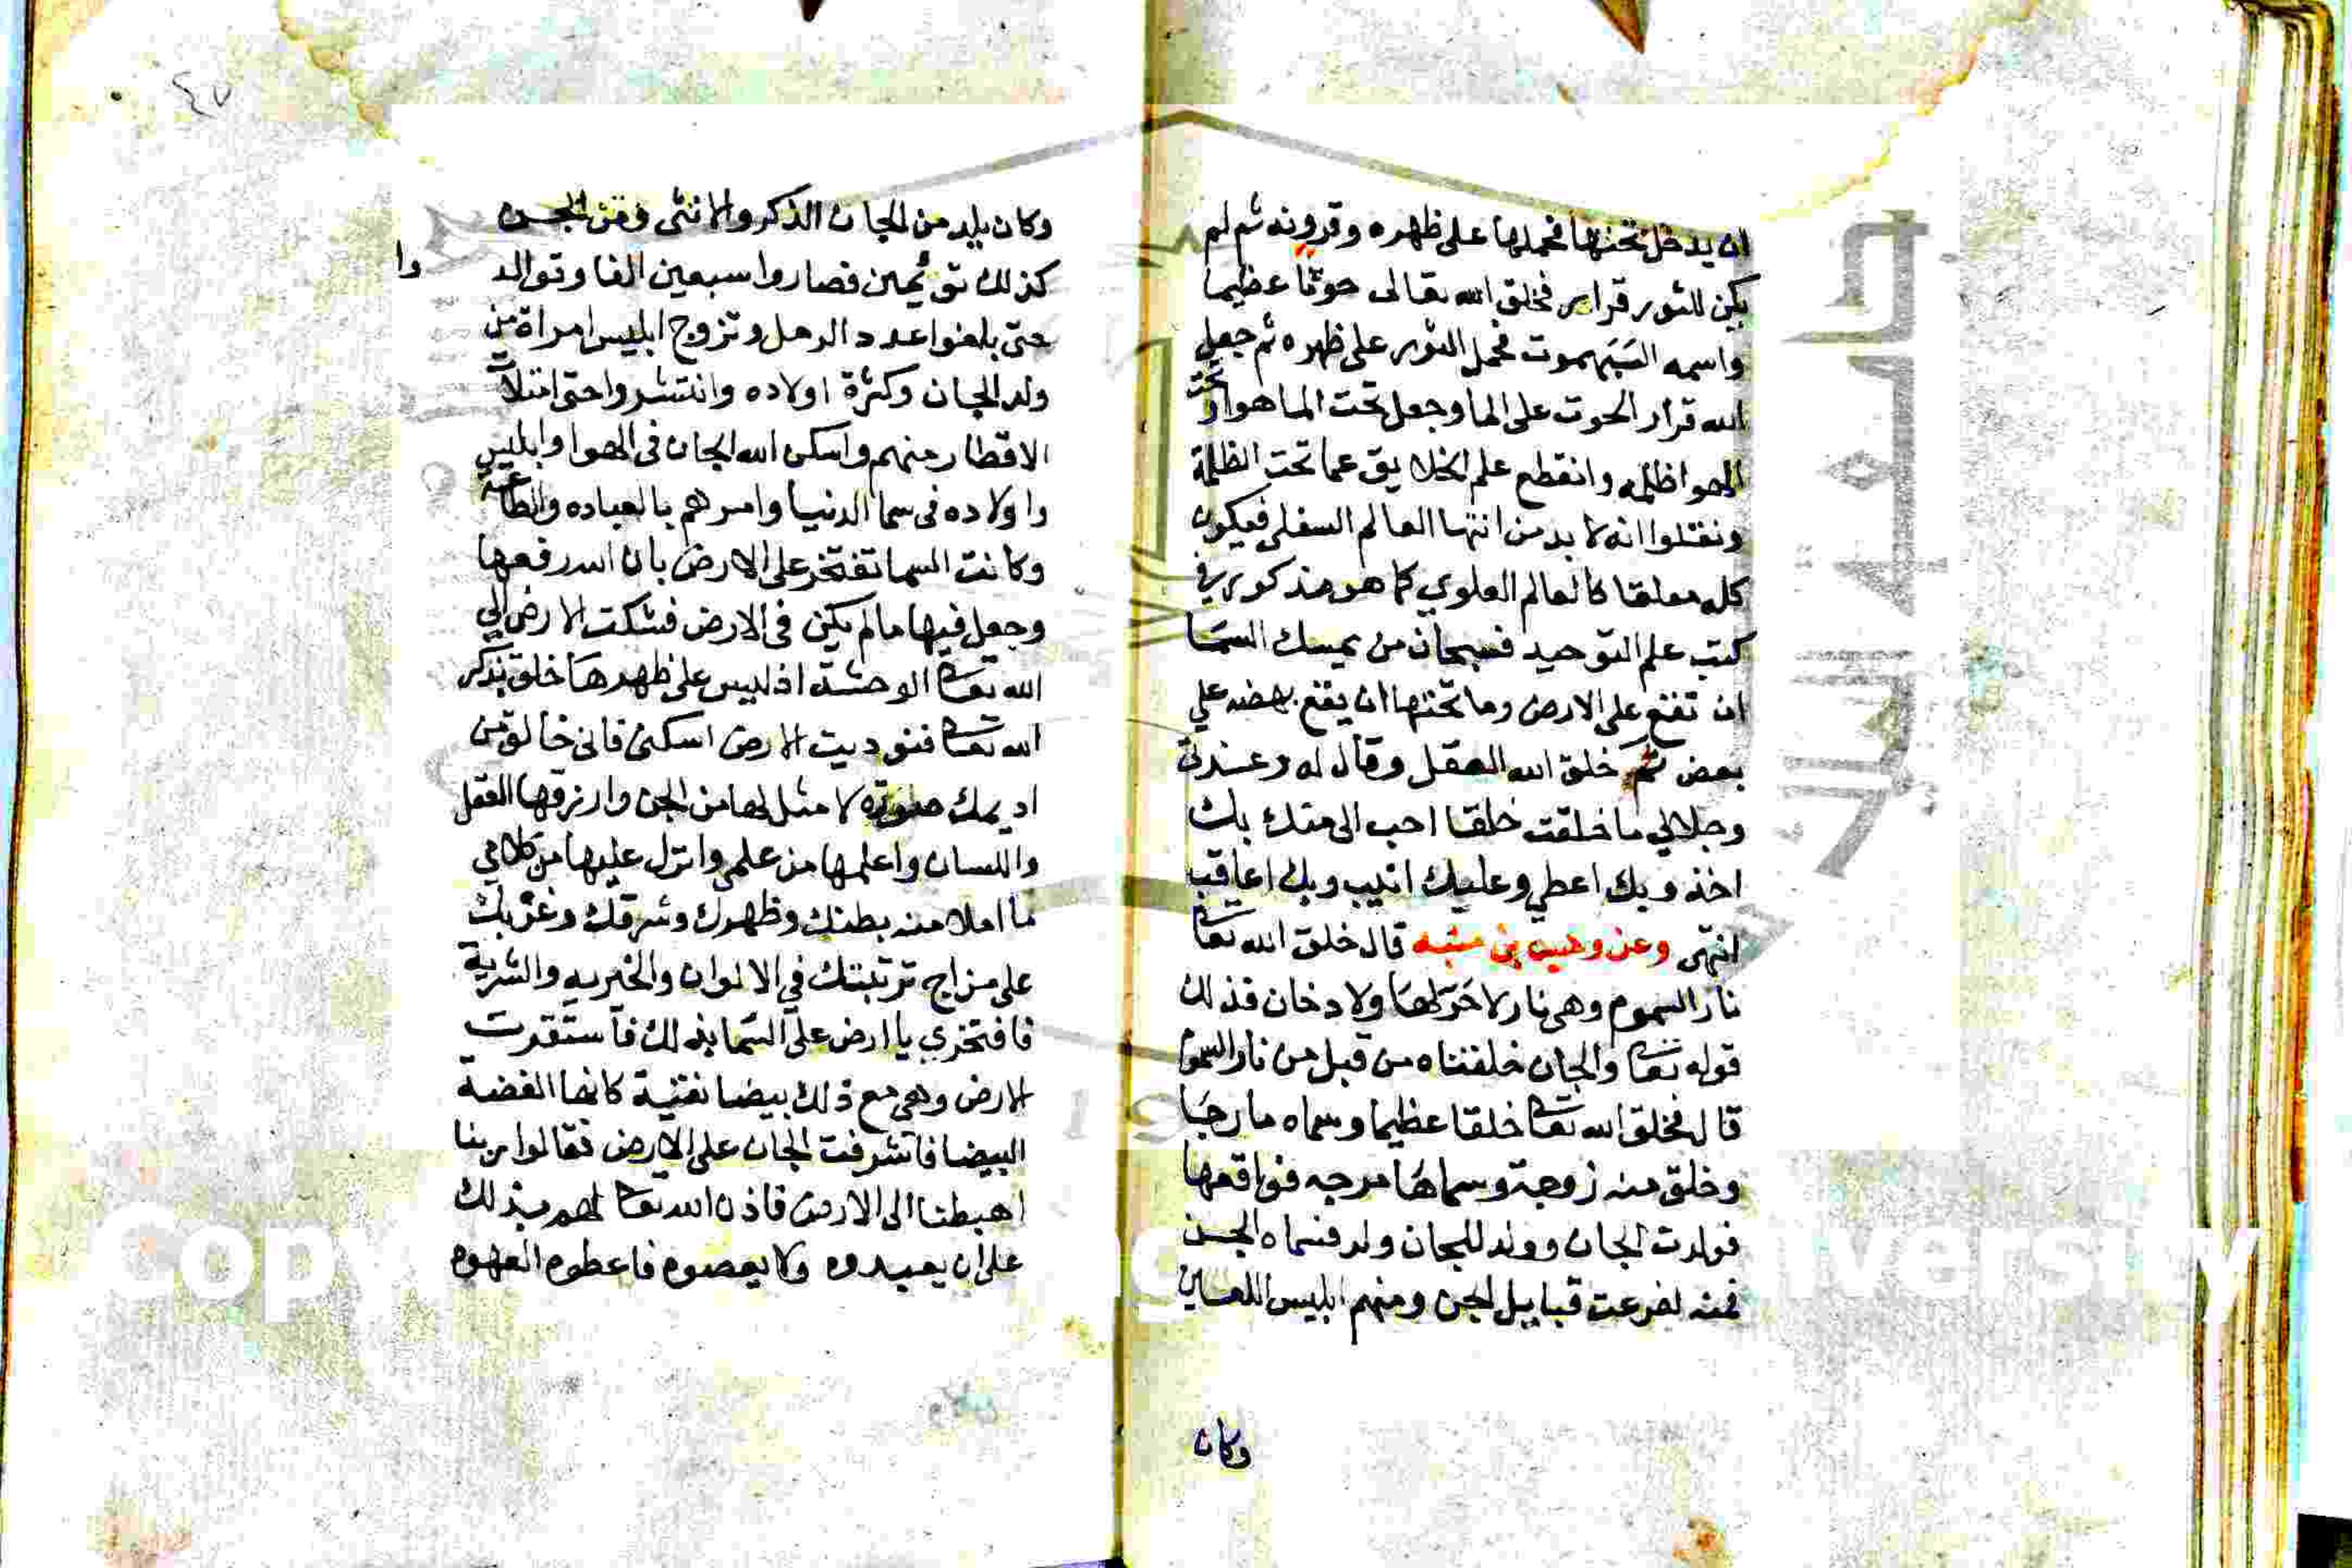 ان يدخل تحتها فحملها على ظهره وقرونه ثم لم
يكن للثور قرار فخلق الله تعالى حوتا عظيما
واسمه البهموت فحمل الثور على ظهره ثم جعل
الله قرار الحوت على الما وجعل تحت الما هوا وتحت
الهوا ظلمه وانقطع علم الخلايق عما تحت الظلمة
ونقلوا انه لا بد من انتها العالم السفلي فيكون
كله معلقا كالعالم العلوي كما هو مذكور في
كتب علم التوحيد فسبحان من يمسك السما
ان تقع على الارض وما تحتها ان يقع بعضه على
بعض ثم خلق الله العقل وقال له وعزتي
وجلالي ما خلقت خلقا احب الى منك بك
اخذ وبك اعطي وعليك اثيب وبك اعاقب
انتهى وعن وهب بن منبه قال خلق الله تعا
نار السموم وهى نار لا حر لها ولا دخان فذلك
قوله تعا والجان خلقناه من قبل من نار السموم
قال فخلق الله تعا خلقا عظيما وسماه مارجا
وخلق منه زوجة وسماها مرجه فواقعها
فولدت الجان وولد للجان ولد فسماه الجن
فمنه تفرعت قبايل الجن ومنهم ابليس اللعين
وكان
٤٧
وكان يلد من الجان الذكر والانثى ومن الجن
كذلك توئمين فصاروا سبعين الفا وتوالد
وا
حتى بلغوا عدد الرمل وتزوج ابليس امراة من
ولد الجان وكثرة اولاده وانتشروا حتى امتلات
الاقطار منهم واسكن الله الجان فى الهوا وابليس
واولاده فى سما الدنيا وامرهم بالعباده والطاعة
وكانت السما تفتخر على الارض بان الله رفعها
وجعل فيها مالم يكن فى الارض فشكت الارض الي
الله تعا الوحشة اذ ليس على ظهرها خلق يذكر
الله تعا فنوديت الارض اسكنى فانى خالق من
اديمك صورة لا مثل لها من الجن وارزقها العقل
واللسان واعلمها من علمى وانزل عليها من كلامي
ما املا منه بطنك وظهرك وشرقك وغربك
على مزاج تربتك في الالوان والخيريه والشرية
فافتخري يا ارض على السما بذلك فاستقرت
الارض وهي مع ذلك بيضا نقية كانها الفضة
البيضا فاشرفت الجان على الارض فقالوا ربنا
اهبطنا الى الارض فاذن الله تعا لهم بذلك
على ان يعبدوه ولا يعصوه فاعطوه العهود